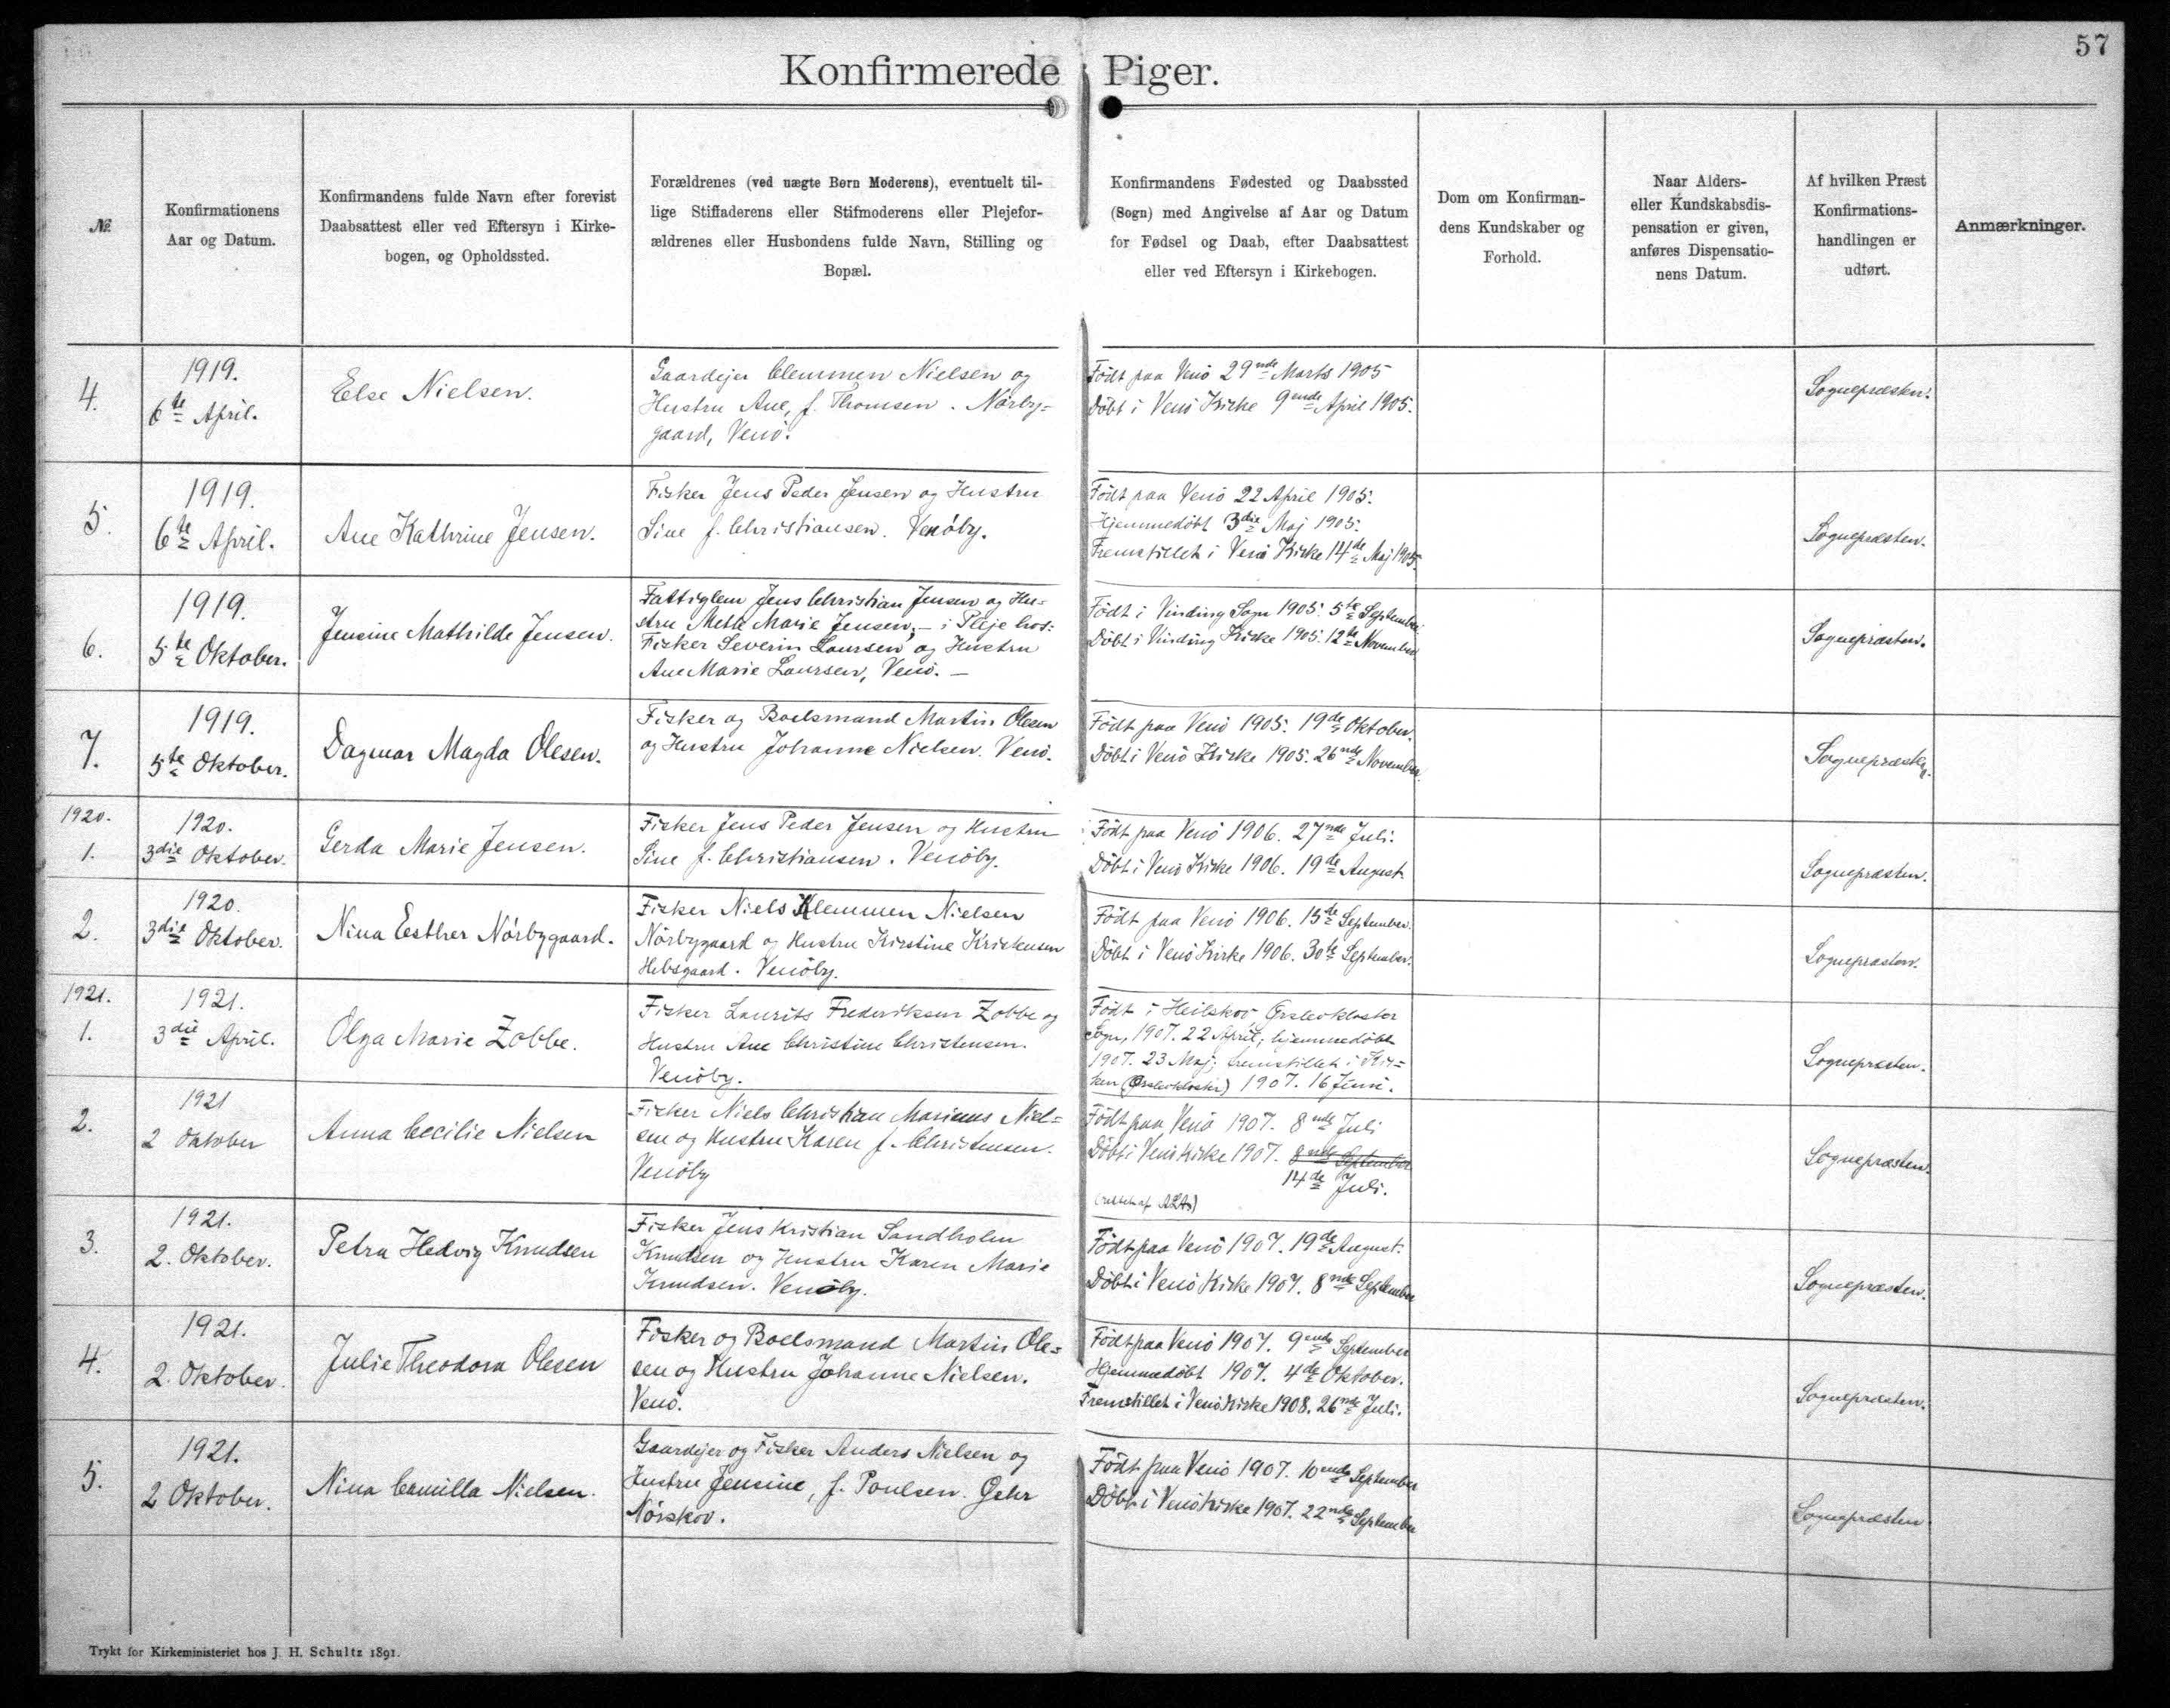 57
Konfirmerede Piger.
№
Konfirmationens
Aar og Datum.
Konfirmandens fulde Navn efter forevist
Daabsattest eller ved Eftersyn i Kirke-
bogen, og Opholdssted.
Forældrenes (ved uægte Børn Moderens), eventuelt til-
lige Stiffaderens eller Stifmoderens eller Plejefor-
ældrenes eller Husbondens fulde Navn, Stilling og
Bopæl.
Konfirmandens Fødested og Daabssted
(Sogn) med Angivelse af Aar og Datum
for Fødsel og Daab, efter Daabsattest
eller ved Eftersyn i Kirkebogen.
Dom om Konfirman-
dens Kundskaber og
Forhold.
Naar Alders-
eller Kundskabsdis-
pensation er given,
anføres Dispensatio-
nens Datum.
Af hvilken Præst
Konfirmations-
handlingen er
udført.
Anmærkninger.
4.
1919.
6te April.
Else Nielsen.
Gaardejer Clemmen Nielsen og
Hustru Ane, f. Thomsen. Nørby=
gaard, Venö.
Födt paa Venö 29nde Marts 1905
Döbt i Venö Kirke 9ende April 1905.
Sognepræsten.
5.
1919.
6te April.
Ane Kathrine Jensen.
Fisker Jens Peder Jensen og Hustru
Sine f. Christiansen. Venöby.
Födt paa Venö 22 April 1905.
Hjemmedöbt 3die Maj 1905.
Fremstillet i Venö Kirke 14de Maj 1905.
Sognepræsten.
6.
1919.
5te Oktober.
Jensine Mathilde Jensen.
Fattiglem Jens Christian Jensen og Hu=
stru Mette Marie Jensen, – i Pleje hos:
Fisker Severin Laursen og Hustru
Ane Marie Laursen, Venö. –
Födt i Vinding Sogn 1905. 5te September.
Döbt i Vinding Kirke 1905. 12te November
Sognepræsten.
7.
1919.
5te Oktober.
Dagmar Magda Olesen.
Fisker og Boelsmand Martin Olesen
og Hustru Johanne Nielsen. Venö.
Födt paa Venö 1905. 19de Oktober.
Döbt i Venö Kirke 1905. 26nde November.
Sognepræsten.
1920.
1.
1920.
3die Oktober.
Gerda Marie Jensen.
Fisker Jens Peder Jensen og Hustru
Sine f. Christiansen. Venöby.
Födt paa Venö 1906. 27nde Juli.
Döbt i Venö Kirke 1906. 19de August.
Sognepræsten.
2.
1920.
3die Oktober.
Nina Esther Nörbygaard.
Fisker Niels Klemmen Nielsen
Nörbygaard og Hustru Kirstine Kristensen
Hebsgaard. Venöby.
Födt paa Venö 1906. 15de September.
Döbt i Venö Kirke 1906. 30te September.
Sognepræsten.
1921.
1.
1921.
3die April.
Olga Marie Zobbe.
Fisker Laurits Frederiksen Zobbe og
Hustru Ane Christine Christensen.
Venöby.
Födt i Heilskov Ørslevkloster
Sogn, 1907. 22 April; hjemmedöbt
1907. 23 Maj; fremstillet i Kir=
ken (Ørslevkloster) 1907. 16 Juni.
Sognepræsten.
2.
1921
2 Oktober
Anna Cecilie Nielsen
Fisker Niels Christian Marinus Niel=
sen og Hustru Karen f. Christensen.
Venöby
Födt paa Venö 1907. 8nde Juli
Döbt i Venö Kirke 1907. 8nde September
14de Juli.
Sognepræsten.
3.
1921.
2. Oktober.
Petra Hedvig Knudsen
Fisker Jens Kristian Sandholm
Knudsen og Hustru Karen Marie
Knudsen. Venöby.
Födt paa Venö 1907. 19de August.
Döbt i Venö Kirke 1907. 8nde September
Sognepræsten.
4.
1921.
2. Oktober.
Julie Theodora Olesen
Fisker og Boelsmand Martin Ole=
sen og Hustru Johanne Nielsen.
Venö.
Födt paa Venö 1907. 9ende September
Hjemmedöbt 1907. 4de Oktober.
Fremstillet i Venö Kirke 1908. 26nde Juli.
Sognepræsten.
5.
1921.
2 Oktober.
Nina Camilla Nielsen.
Gaardejer og Fisker Anders Nielsen og
Hustru Jensine, f. Poulsen.
Nörskov.
Födt paa Venö 1907. 10ende September
Döbt i Venö Kirke 1907. 22nde September
Sognepræsten
Trykt for Kirkeministeriet hos J. H. Schultz 1891.